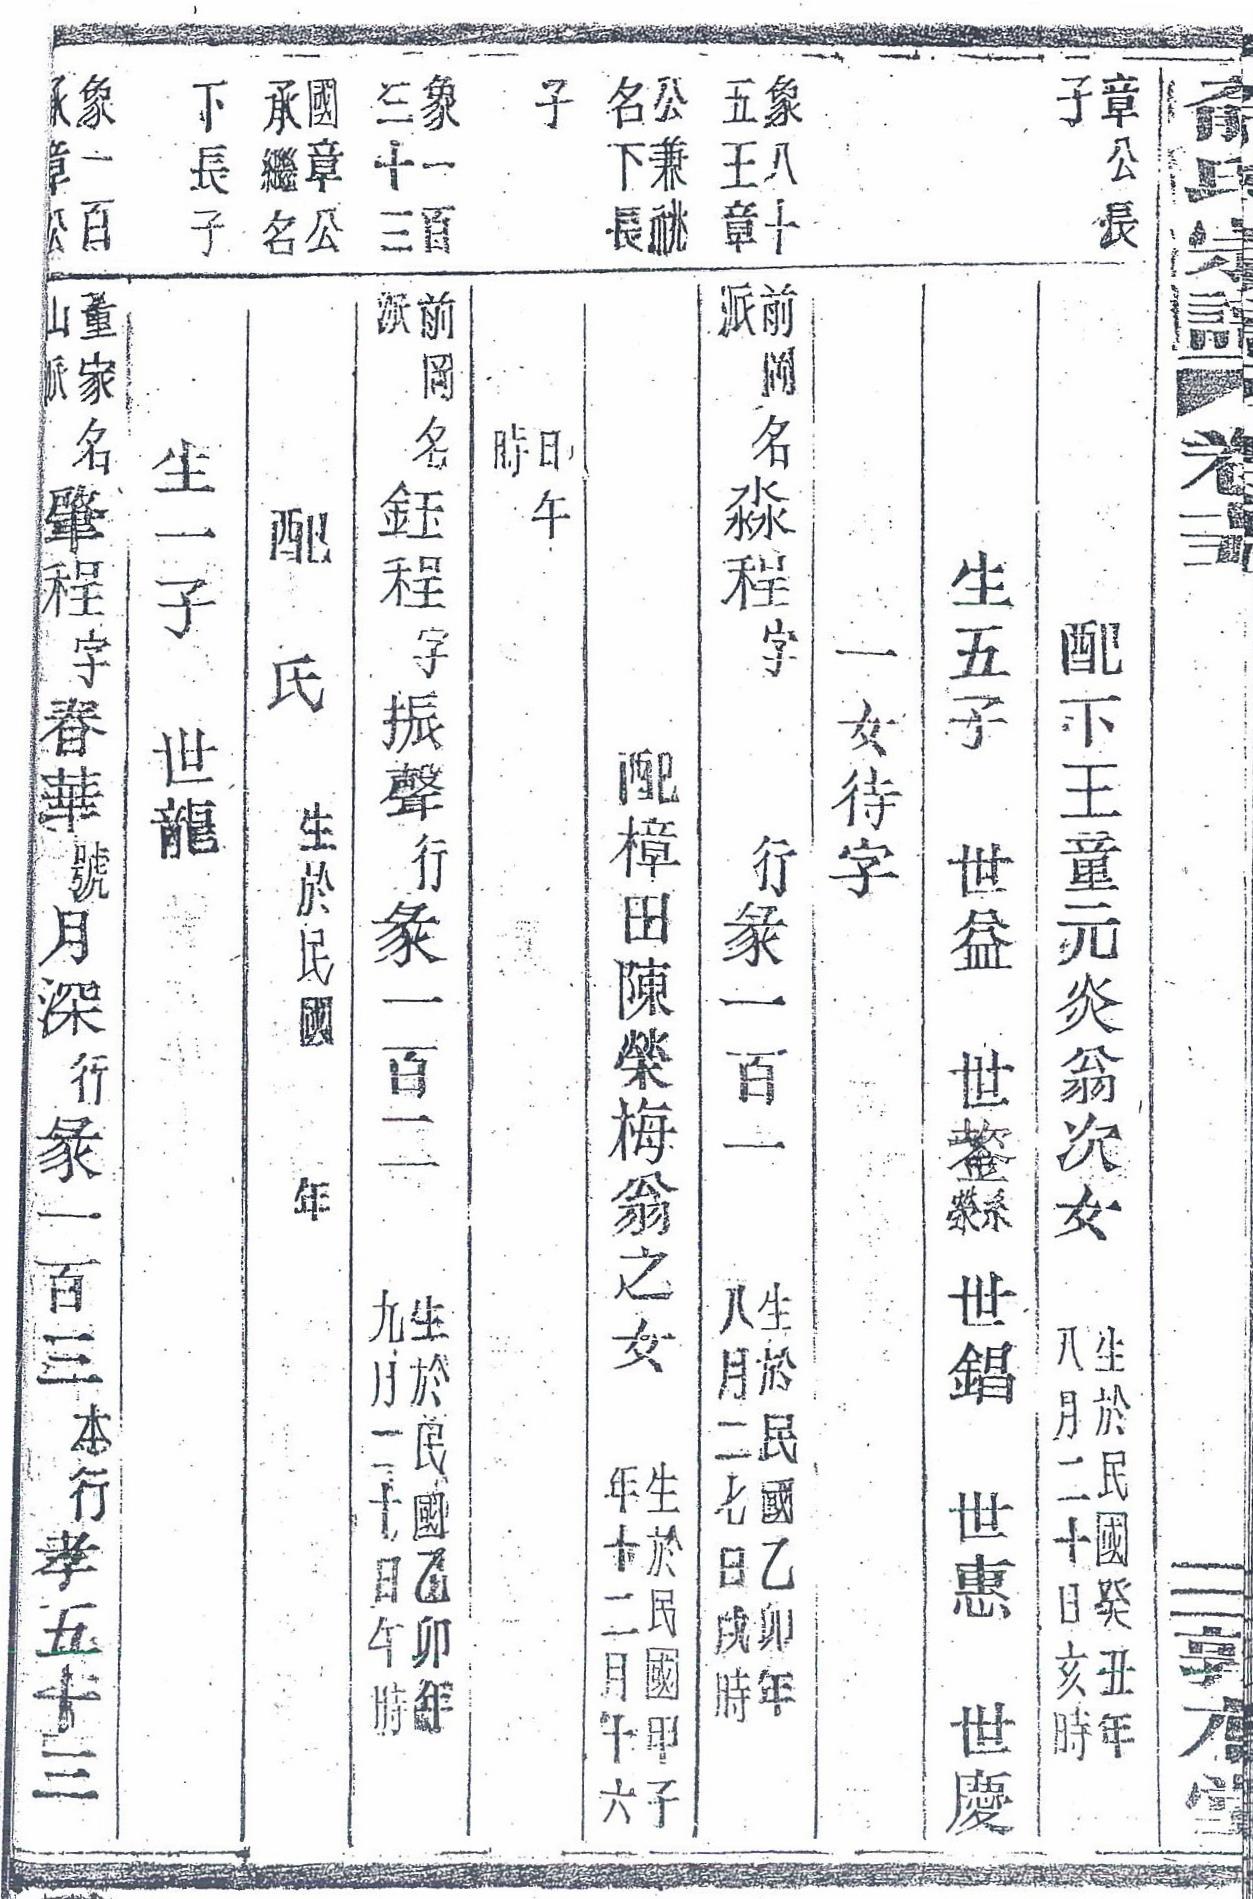 氏宗譜 卷三
章公長
子
配下王童元炎翁次女 生於民國癸丑年
八月二十日亥時
生五子 世益 世 世錩 世惠 世慶
一女待字
象八十
五王章
前岡
派
名淼程字 行彖一百一 生於民國乙卯年
八月二七日戌時
公兼祧
名下長
配樟田陳榮梅翁之女 生於民國甲子
年十二月十六
子
日午
時
象一百
二十三
前岡
派
名鈺程字振聲行彖一百二 生於民國乙卯年
九月二十七日午時
國章公
承繼名
配 氏 生於民國 年
下長子
生一子 世龍
象一百
章公
董家
山派
名肇程字春華號月深行彖一百三本行孝五十三